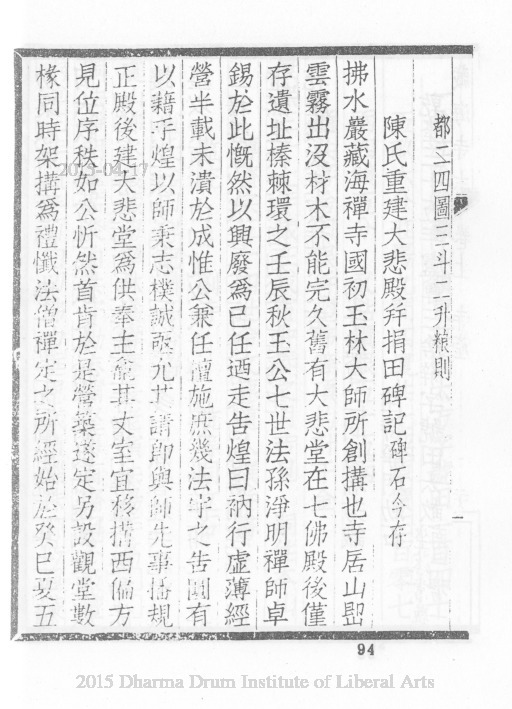 都二四圖三斗二升糧則
陳氏重建大悲殿幷捐田碑記碑石今存
拂水巖藏海禪寺國初玉林大師所創搆也寺居山
雲霧出沒材木不能完久舊有大悲堂在七佛殿後僅
存遺址榛棘環之壬辰秋玉公七世法孫淨明禪師卓
錫於此慨然以興廢爲己任迺走告煌曰衲行虛薄經
營半載未潰於成惟公兼任檀施庶幾法宇之告圓有
以藉手煌以師秉志樸誠亟允其請卽與師先事播規
正殿後建大悲堂爲供奉主龕其丈室宜移搆西偏方
見位序秩如公忻然首肯於是營築遂定另設觀堂數
椽同時架搆爲禮懺法僧禪定之所經始於癸巳夏五
94
2015-04-17
2015 Dharma Drum Institute of Liberal Arts